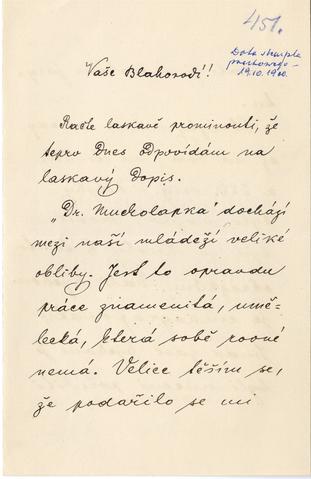 451.
Data stempla
pocztowego -
19.10.1910.
Vaše Blahorodí!
Račte laskavě prominouti, že
teprv dnes odpovídám na
laskavý dopis.
„Dr. Muckolapka" dochází
mezi naší mládeží veliké
obliby. Jest to opravdu
práce znamenitá, umě-
lecká, která sobě rovné
nemá. Velice těším se,
že podařilo se mi